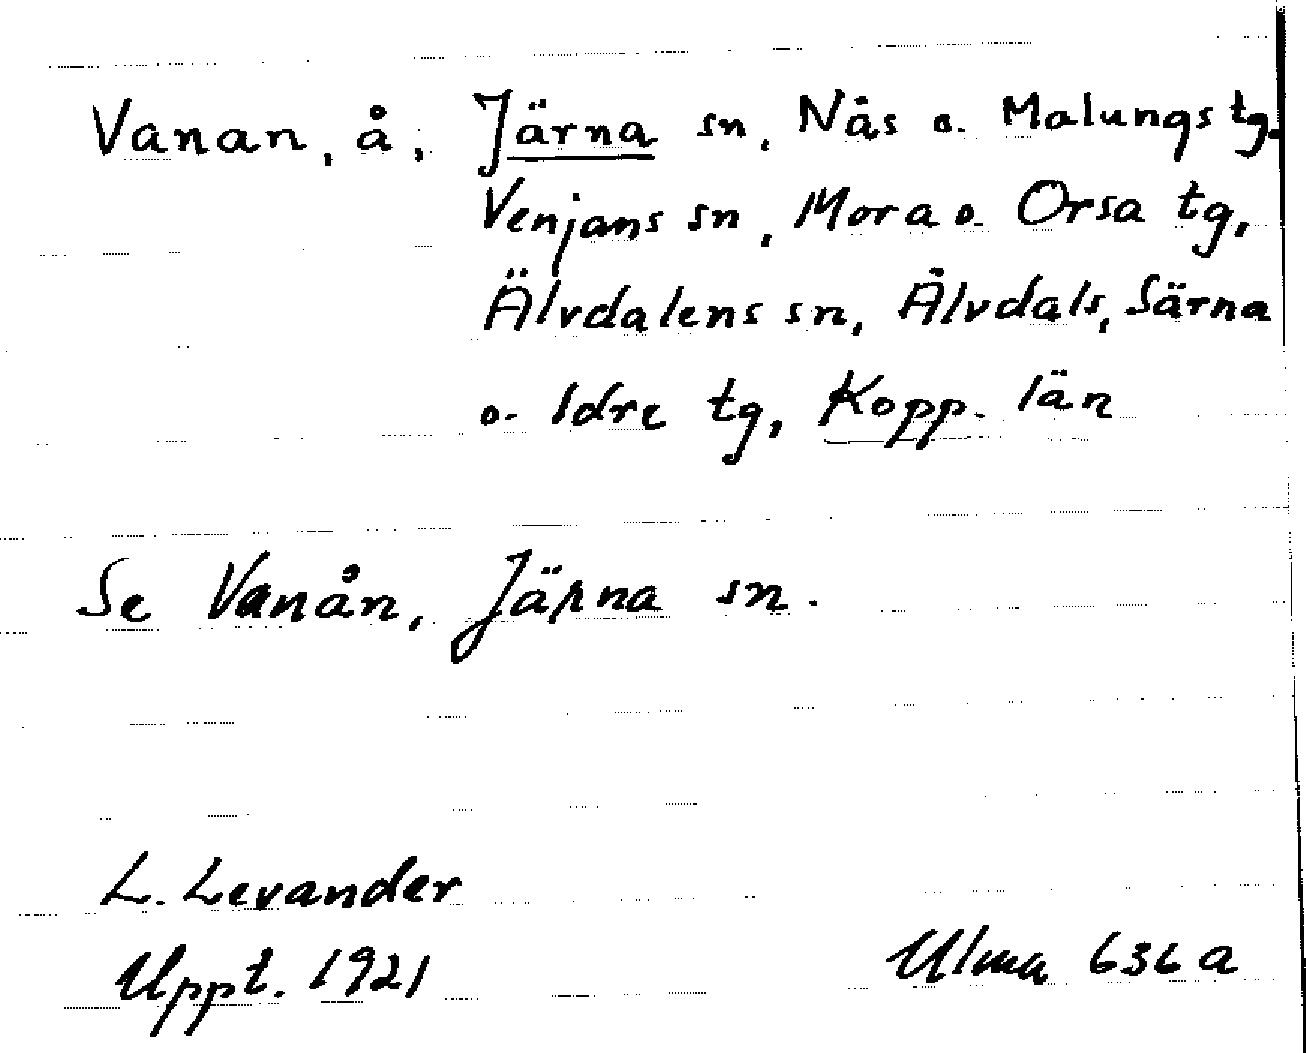 Vanan, å, Järna sn, Nås o. Malungs tg.
Venjans sn, Mora o. Orsa tg,
Älvdalens sn, Älvdals, Särna
o. Idre tg, Kopp. län
Se Vanån, Järna sn.
L. Levander
Uppt. 1921
Ulma 636 a